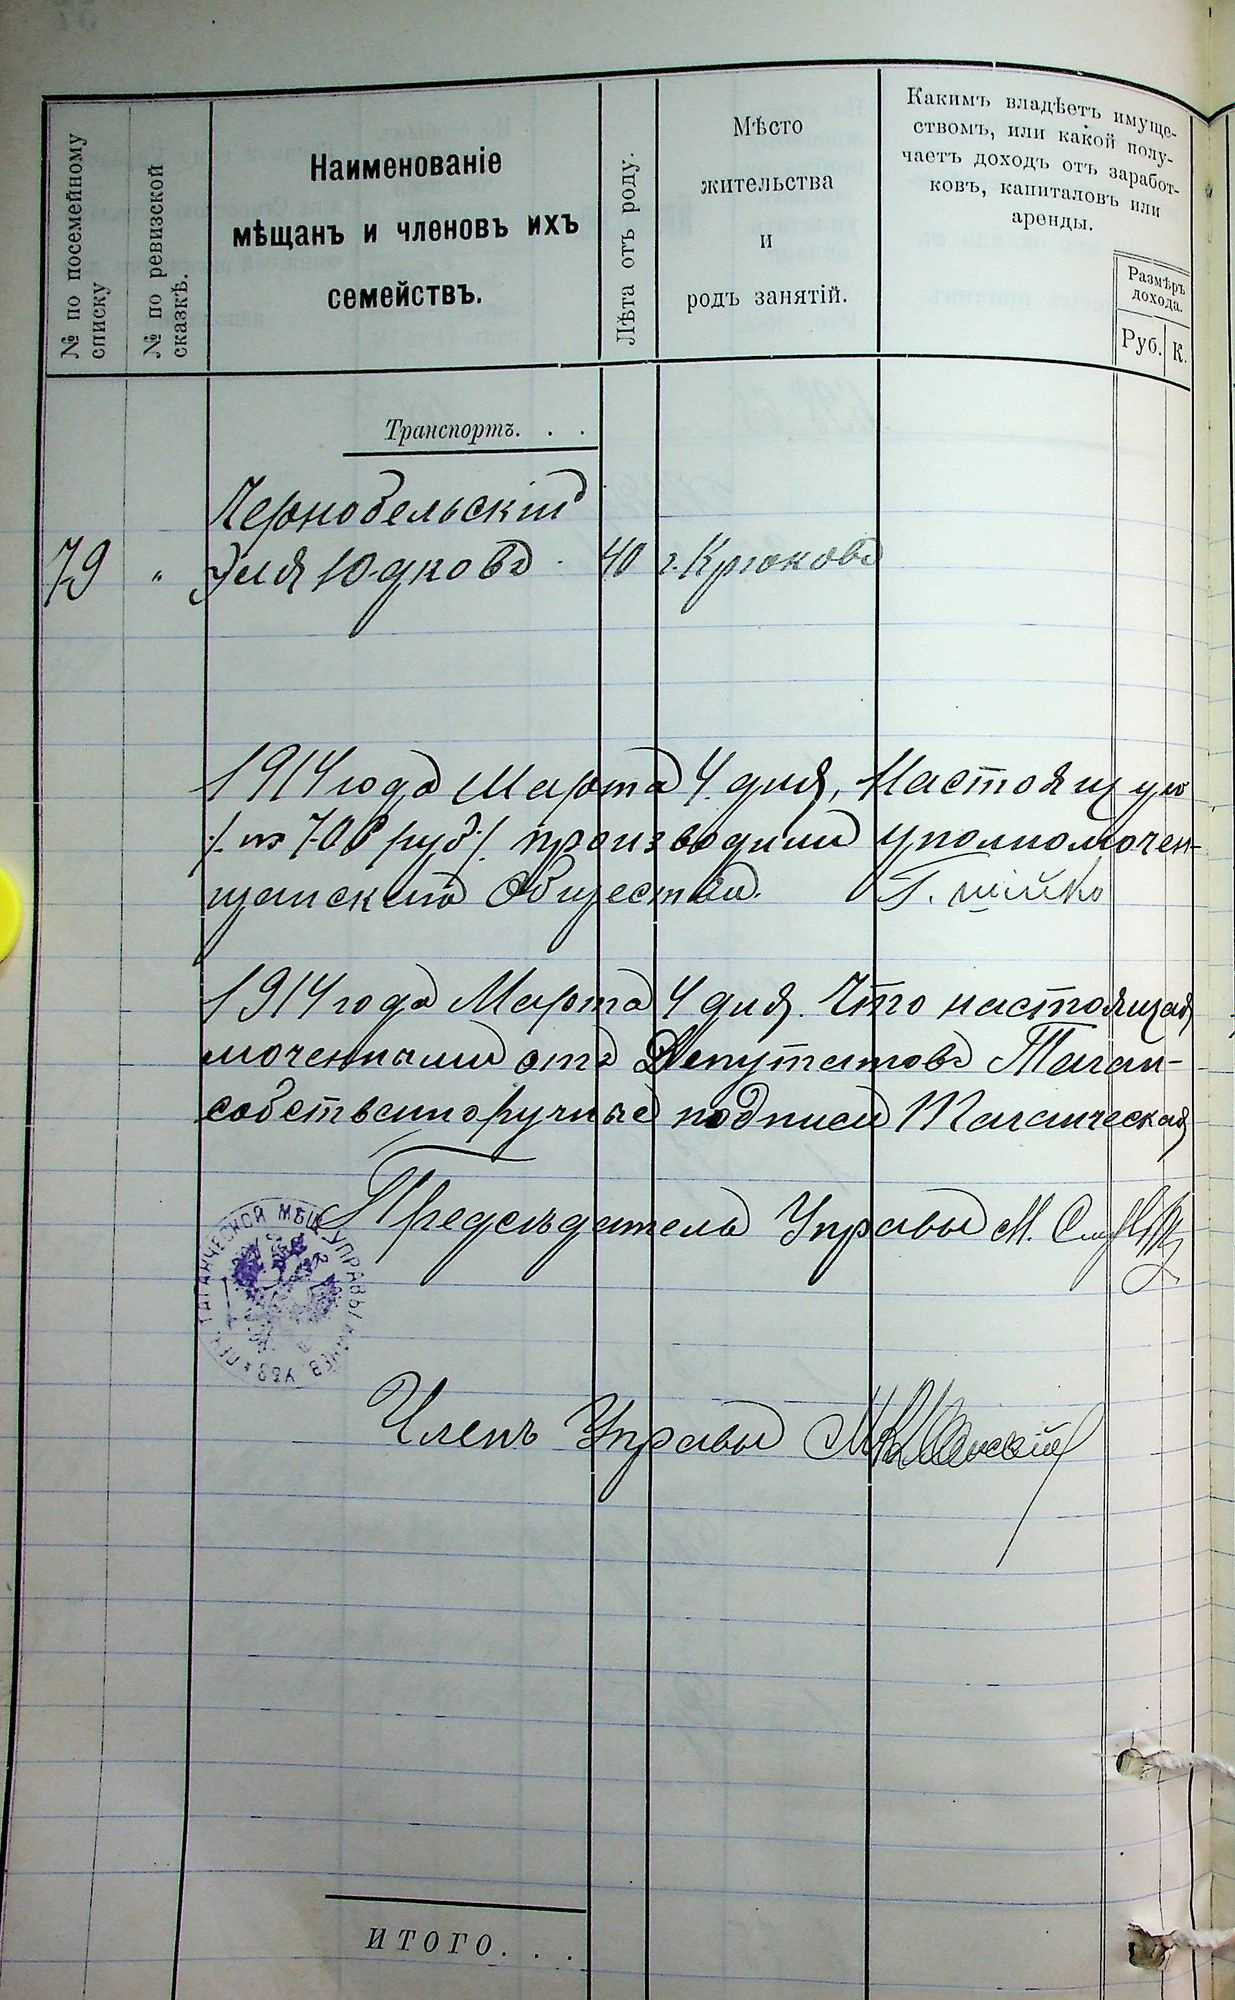 № по посемейному
списку
№ по ревизской
сказкѣ.
Наименованіе
мѣщанъ и членовъ ихъ
семействъ.
Лѣта отъ роду.
Мѣсто
жительства
и
родъ занятій.
Какимъ владѣетъ имуще-
ствомъ, или какой полу-
чаетъ доходъ отъ заработ-
ковъ, капиталовъ или
аренды.
Размѣръ
дохода.
Руб. К.
Транспортъ. . .
Чернобельскій
79 " Эля Юдковъ 40 г. Крюковъ
1914 года Марта 4 дня, Настоящую
производили уполномочен-
щанскаго Общества.
1914 года Марта 4 дня. Что настоящая
моченными отъ Депутатовъ Таган-
собственноручные подписи Таганческая
Предсѣдатель Управы М.
ТАГАНЧЕСКОЙ МѢЩ. УПРАВЫ КАНЕВ. УѢЗ.
Членъ Управы
ИТОГО. . .